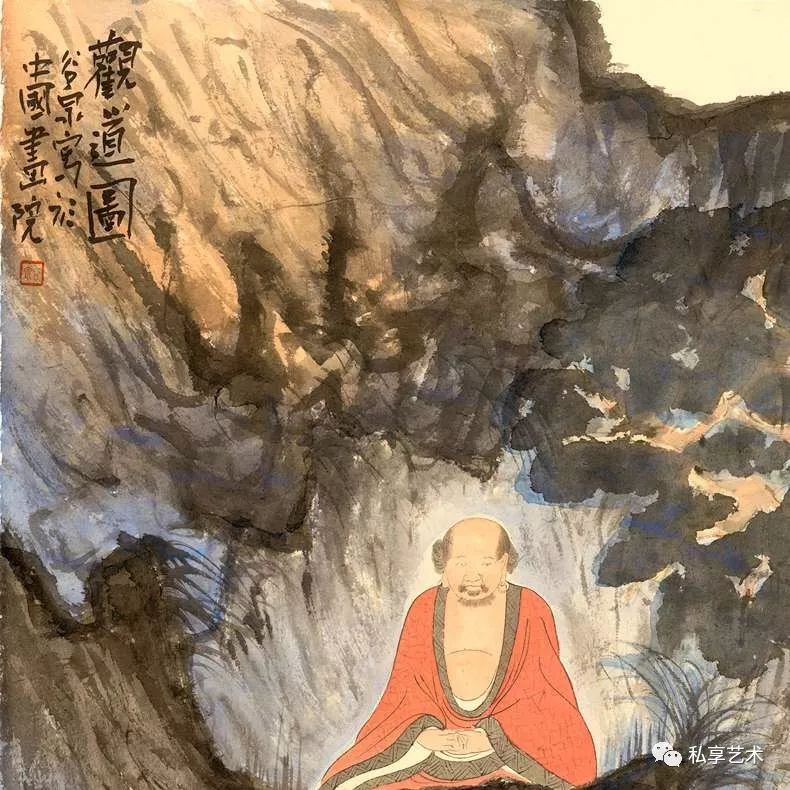 觀道圖
谷泉寫於
中國畫院
私享艺术